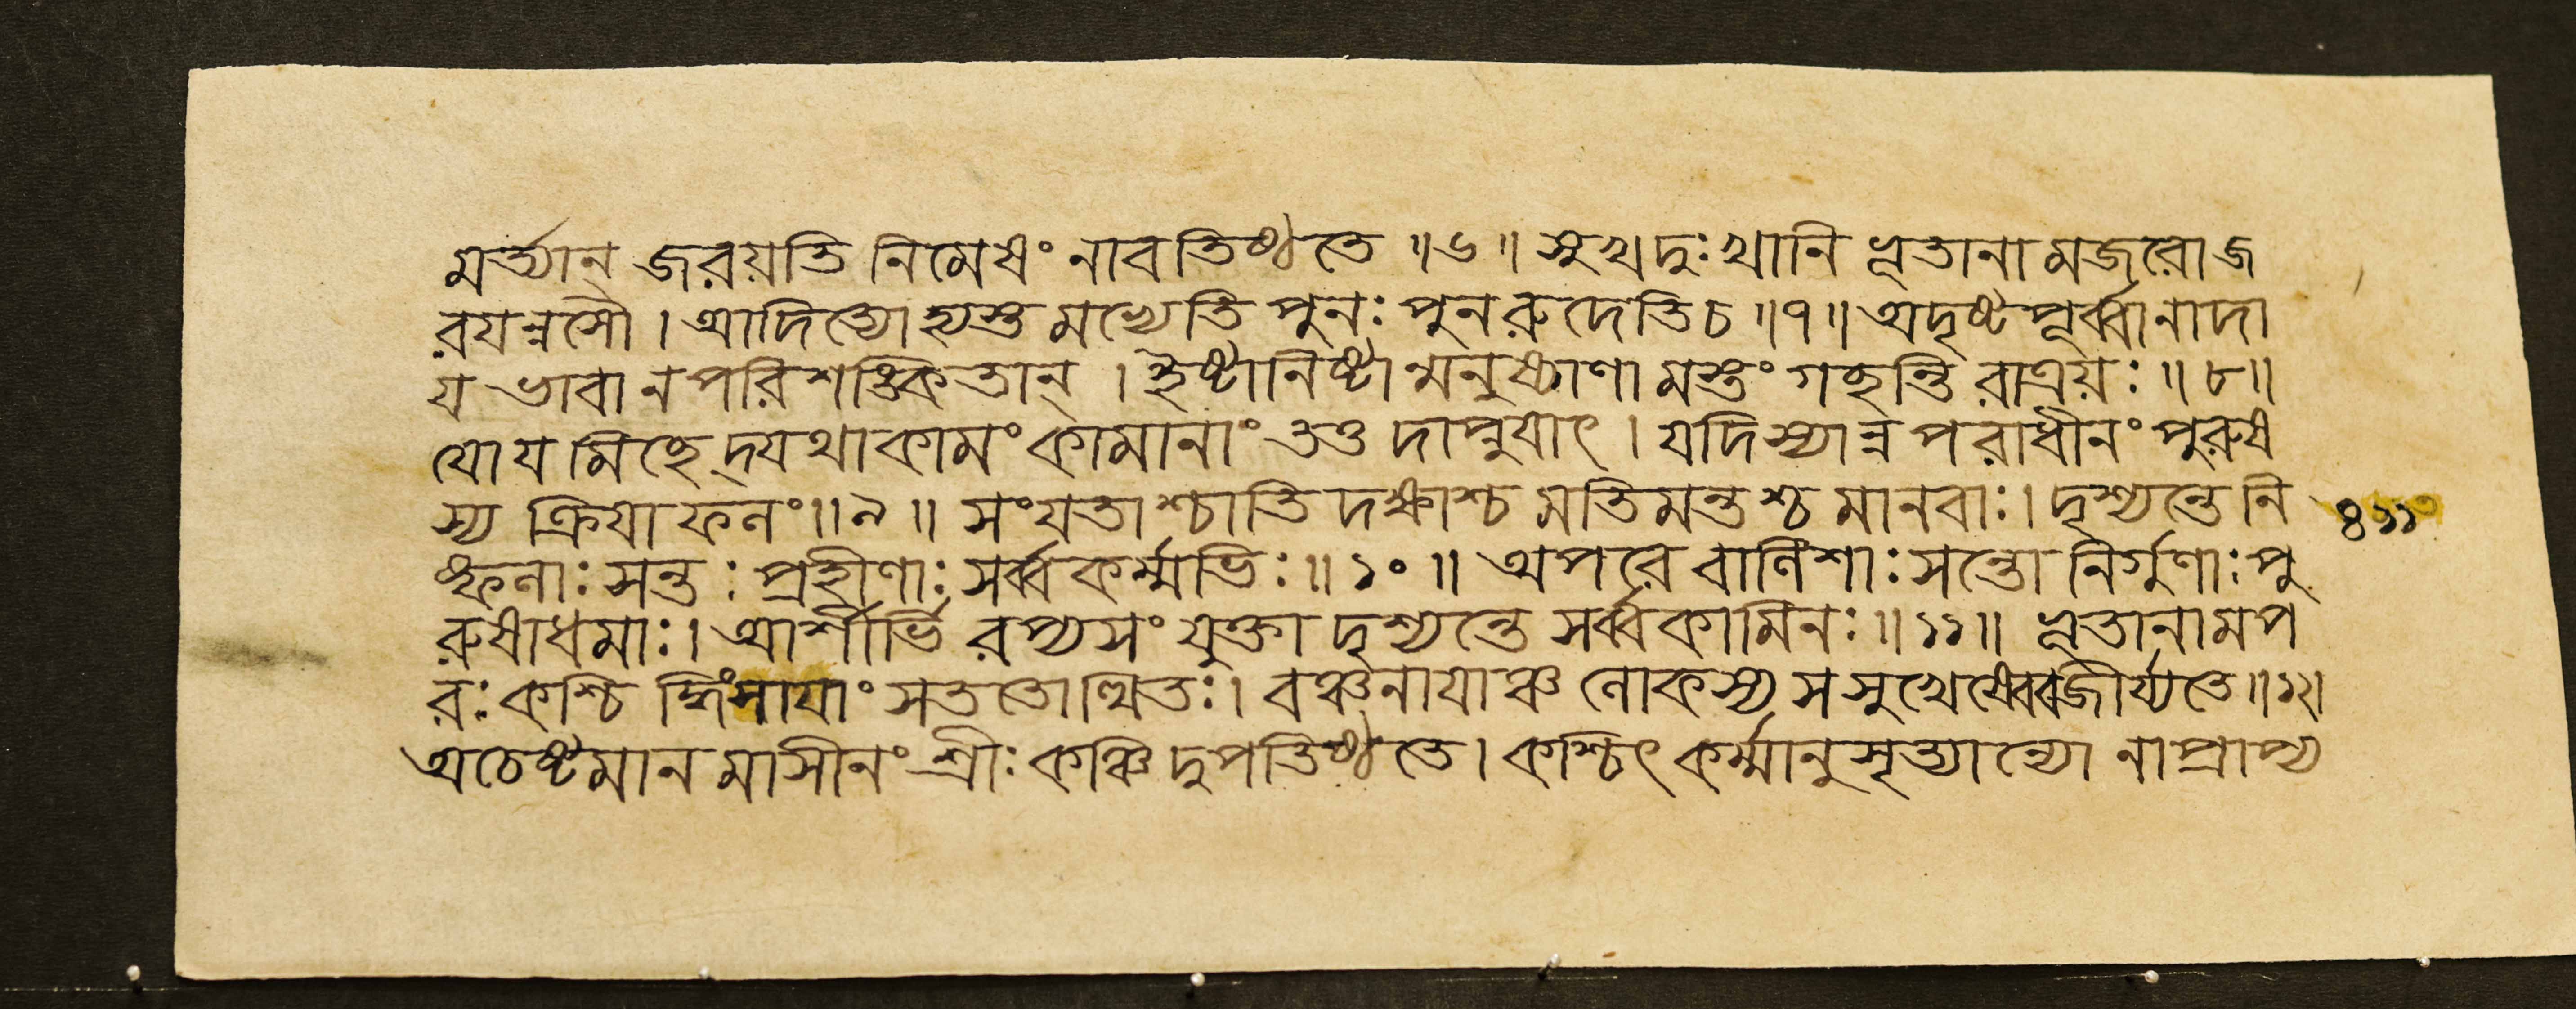 মর্ত্যান্ জরয়তি নিমেষং নাবতিষ্ঠতে ॥৬॥ সুখদুঃখানি ভূতানামজরোজ
রযন্নসৌ । আদিত্যোহ্যস্তমভ্যেতি পুনঃ পুনরুদেতিচ ॥৭॥ অদৃষ্টপূর্ব্বানাদা
য ভাবানপরিশঙ্কিতান্ । ইষ্টানিষ্টান্মনুষ্যাণামস্তং গচ্ছন্তি রাত্রয়ঃ ॥৮॥
যোযমিচ্ছেদ্যথাকামং কামানাং তত্তদাপ্নুযাৎ । যদিস্যান্ন পরাধীনং পুরুষ
স্য ক্রিযাফলং॥৯॥ সংযতাশ্চাতিদক্ষাশ্চ মতিমন্তশ্চ মানবাঃ। দৃশ্যন্তে নি
ষ্ফলাঃ সন্তঃ প্রহীণাঃ সর্ব্বকর্ম্মভিঃ॥১০॥ অপরে বালিশাঃ সন্তো নির্গুণাঃ পু
রুষাধমাঃ। আশীর্ভিরপ্যসংযুক্তা দৃশ্যন্তে সর্ব্বকামিনঃ॥১১॥ ভূতানামপ
রঃ কশ্চিদ্ধিংসাযাং সততোত্থিতঃ। বঞ্চনাযাঞ্চ লোকস্য সসুখেষ্বেবজীর্য্যতে॥১২।
অচেষ্টমানমাসীনং শ্রীঃ কঞ্চিদুপতিষ্ঠতে। কশ্চিৎ কর্ম্মানুসৃত্যান্যো নাপ্রাপ্য
৪১১